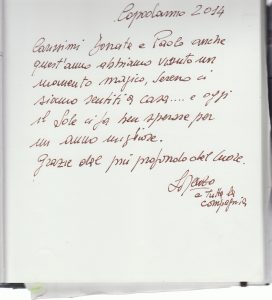 Capodanno 2014
Carissimi Donata e Paolo anche
quest'anno abbiamo vissuto un
momento magico, sereno ci
siamo sentiti a casa.... e oggi
il Sole ci fa ben sperare per
un anno migliore.
Grazie dal più profondo del Cuore.
e tutta la
compagnia